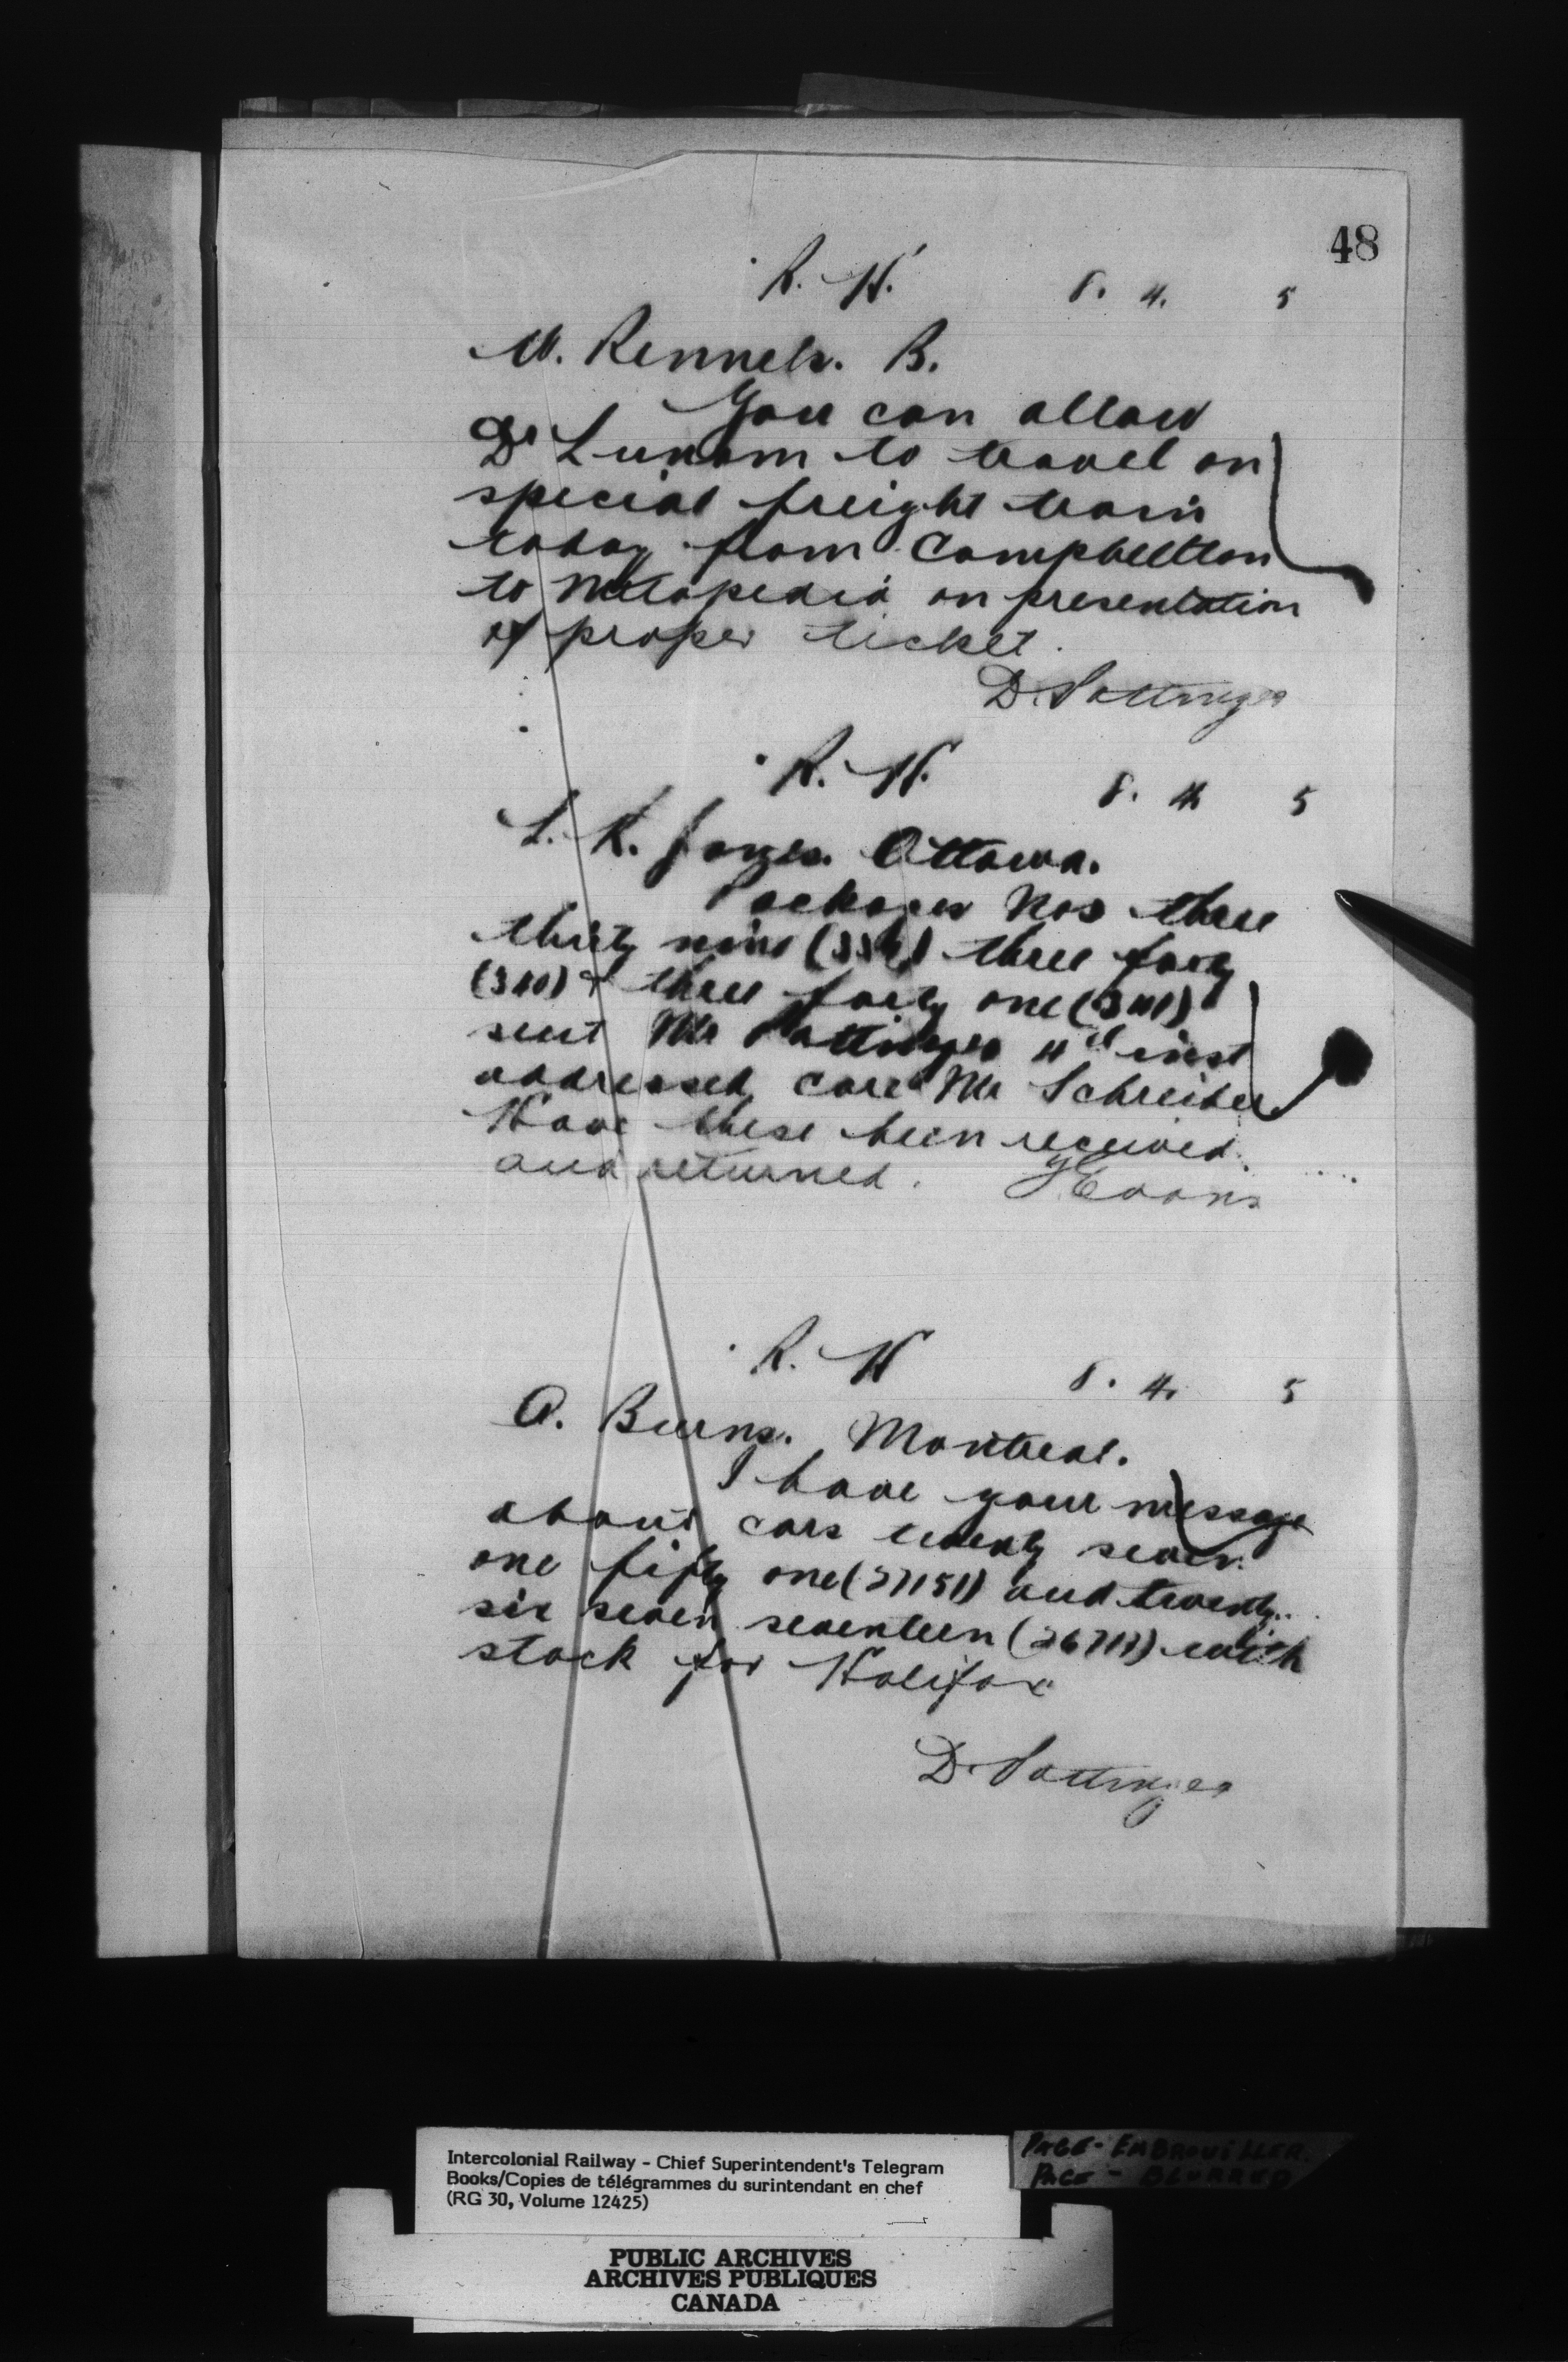 48
R. H. 8. 4. 5
M. Rennels. B.
You can allow
Dr Lunam to travel on
special freight train
today from Campbellton
to Metapedia on presentation
of proper ticket.
D. Pottinger
R. H. 8. 4 5
L. K. Jones. Ottawa.
Packages Nos three
thirty nine (339) three forty
(340) & three forty one (341)
sent Mr Pottinger 4th inst
addressed care Mr Schreiber
Have these been received
and returned. Evans
R. H 8. 4. 5
A. Burns. Montreal.
I have your message
about cars twenty seven
one fifty one (27151) and twenty
six seven seventeen (26717) with
stock for Halifax
D. Pottinger
Intercolonial Railway - Chief Superintendent's Telegram
Books/Copies de télégrammes du surintendant en chef
(RG 30, Volume 12425)
PAGE - EMBROUILLER.
PAGE - BLURRED
PUBLIC ARCHIVES
ARCHIVES PUBLIQUES
CANADA